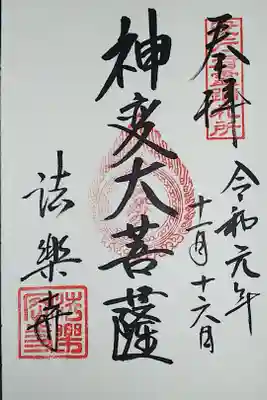 奉拝
令和元年
十一月十六日
神変大菩薩
法楽寺